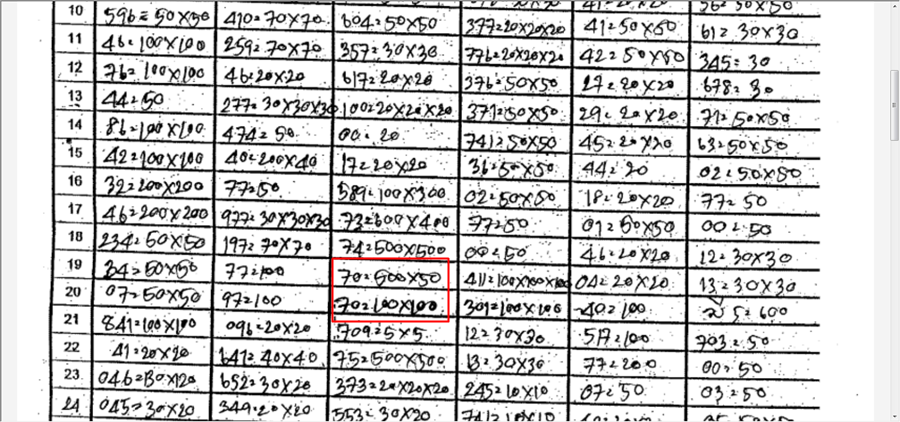 10 596=50X50 410=70X70 604=50X50 377=20X20X20 41=50X50 61=30X30
11 46=100X100 259=70X70 357=30X30 776=20X20X20 42=50X50 345=30
12 76=100X100 46=20X20 617=20X20 376=50X50 27=20X20 678=30
13 44=50 277=30X30X30 100=20X20X20 371=50X50 29=20X20 71=50X50
14 86=100X100 474=50 00=20 741=50X50 45=20X20 63=50X50
15 42=100X100 40=200X40 17=20X20 36=50X50 44=20 02=50X50
16 32=200X200 77=50 589=100X300 02=50X50 18=20X20 77=50
17 46=200X200 977=30X30X30 73=600X400 77=50 01=50X50 00=50
18 234=50X50 197=70X70 74=500X500 00=50 46=20X20 12=30X30
19 34=50X50 77=100 70=500X50 411=100X100X100 04=20X20 13=30X30
20 07=50X50 97=100 70=100X100 301=100X100 40=100 5=600
21 841=100X100 096=20X20 709=5X5 12=30X30 517=100 703=50
22 41=20X20 641=40X40 75=500X500 13=30X30 77=200 00=50
23 046=30X20 652=30X20 373=20X20X20 245=10X10 07=50 03=50
24 045=30X20 349=20X20 553=30X20 741=10X10